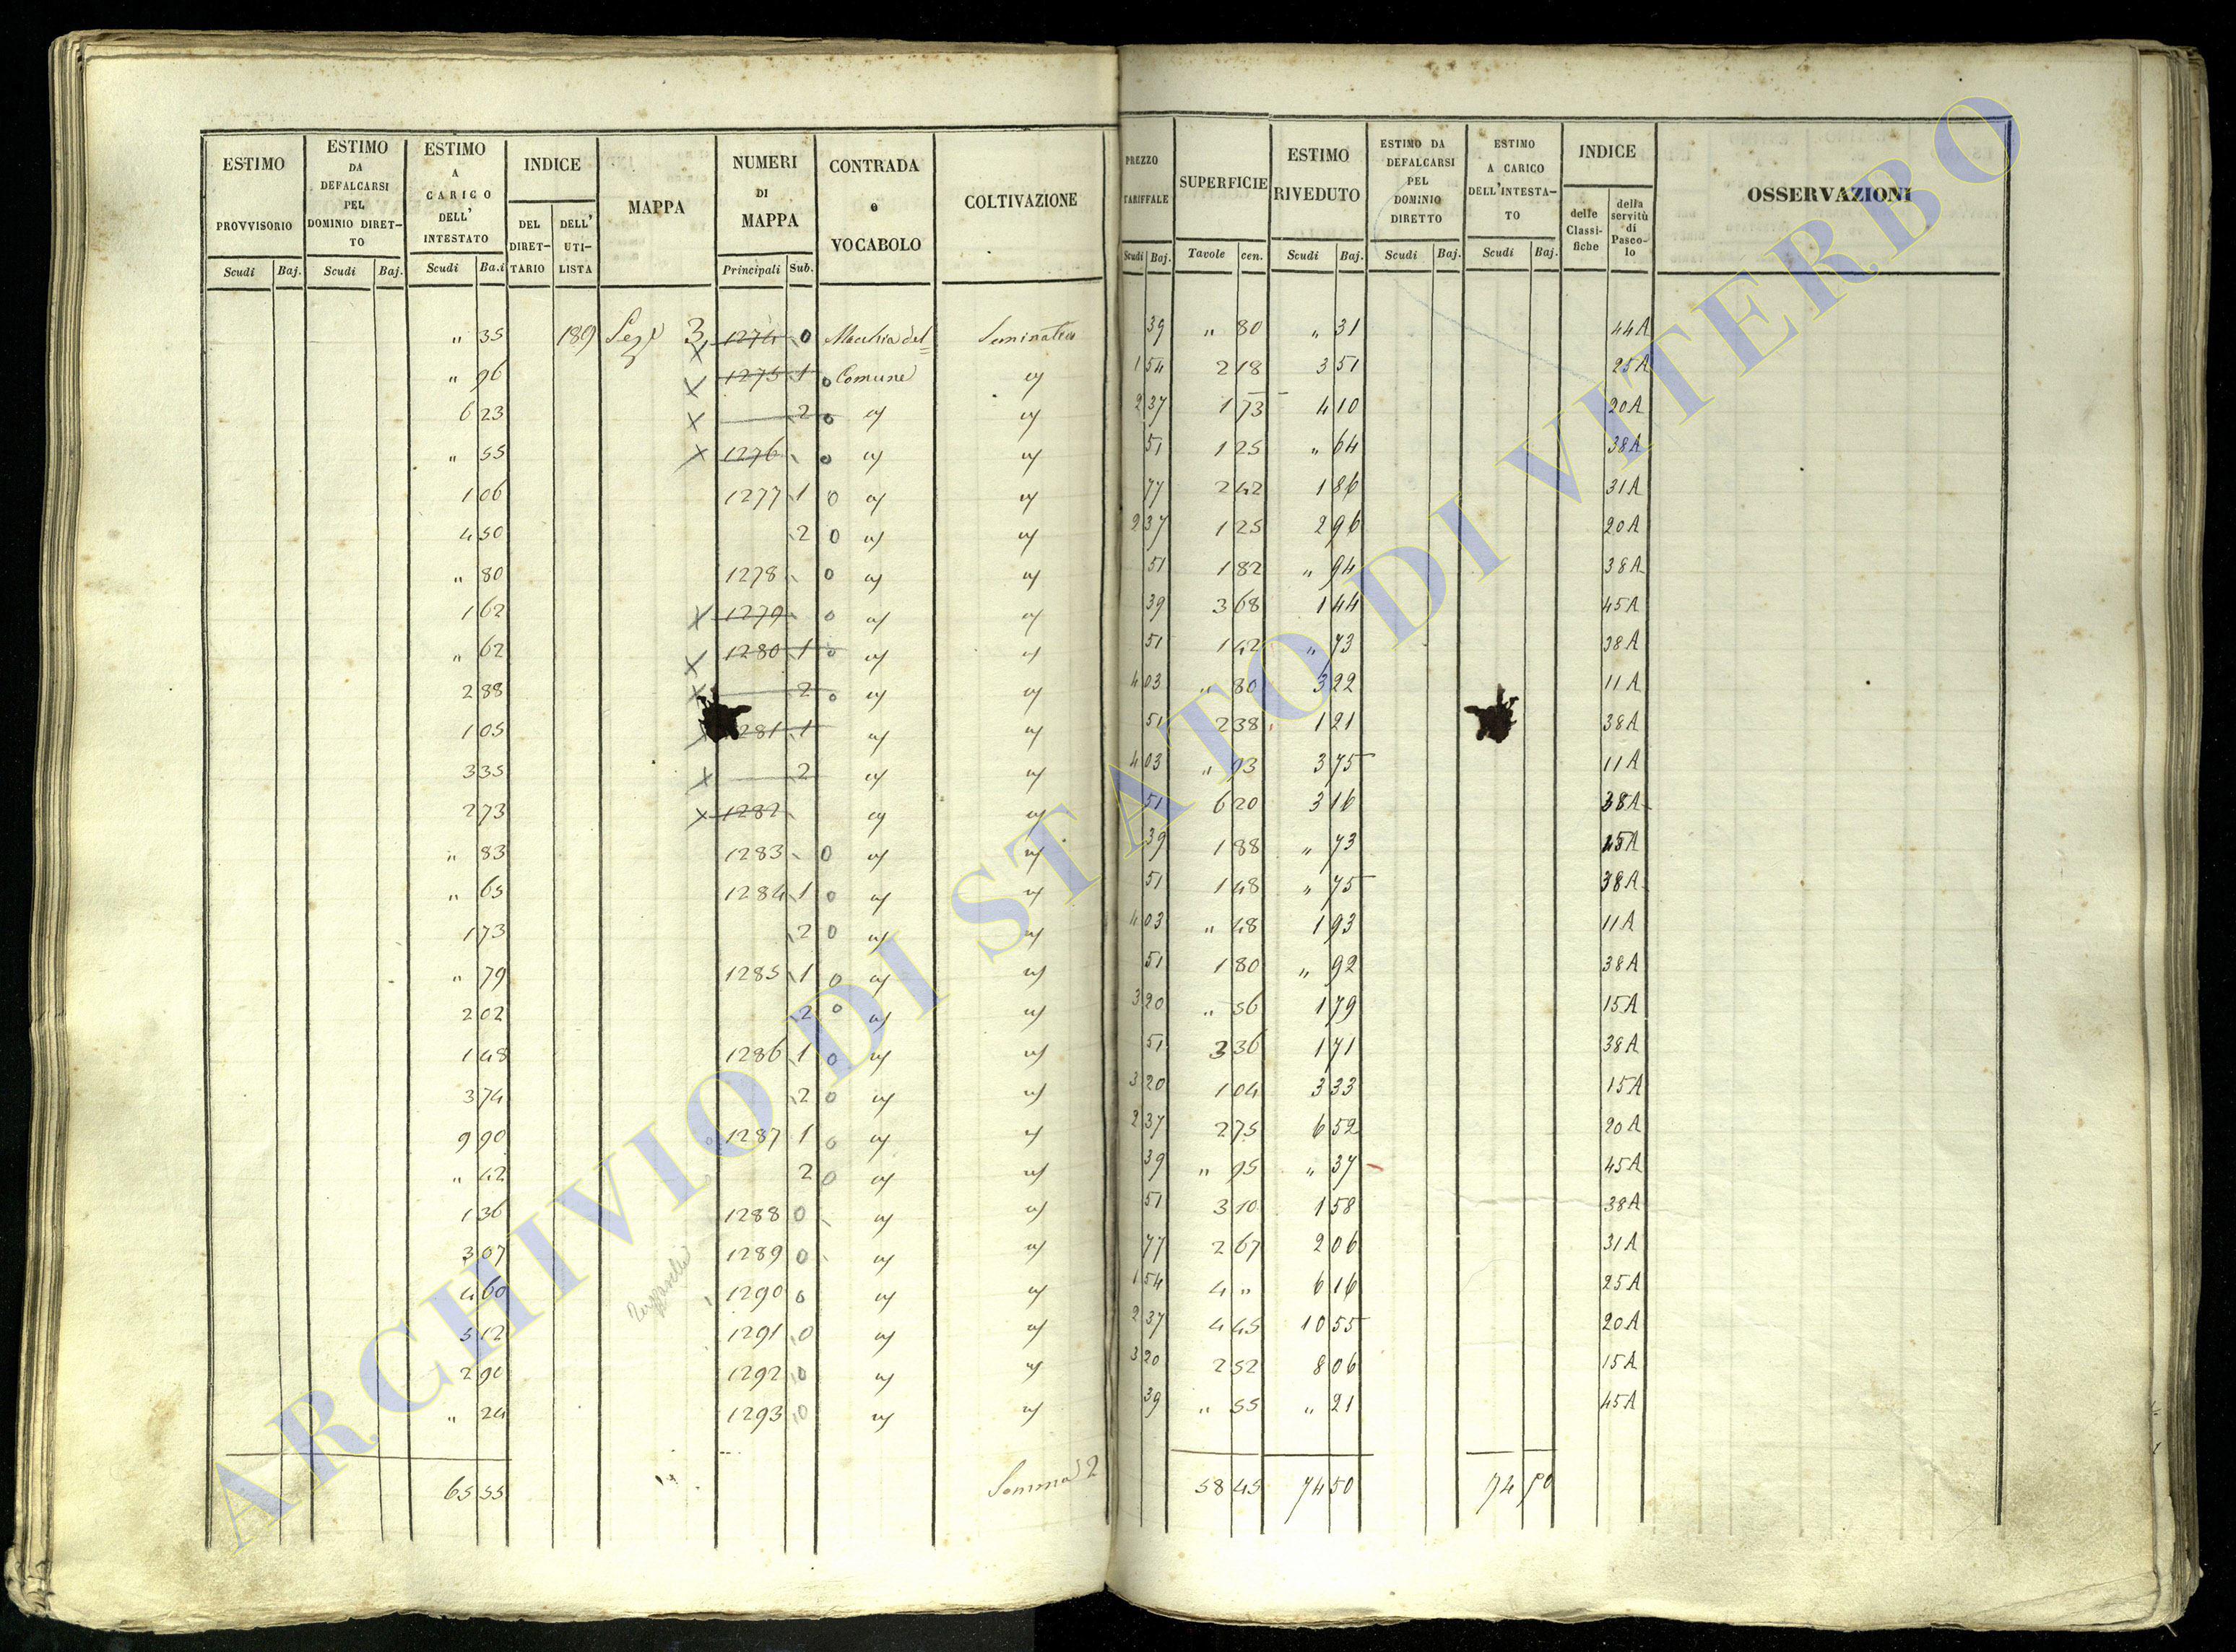 ESTIMO PROVVISORIO Scudi Baj. ESTIMO DA DEFALCARSI PEL DOMINIO DIRETTO Scudi Baj. ESTIMO A CARICO DELL' INTESTATO Scudi Ba.i INDICE DEL DIRETTARIO DELL' UTILISTA MAPPA NUMERI DI MAPPA Principali Sub. CONTRADA o VOCABOLO COLTIVAZIONE PREZZO TARIFFALE Scudi Baj. SUPERFICIE Tavole cen. ESTIMO RIVEDUTO Scudi Baj. ESTIMO DA DEFALCARSI PEL DOMINIO DIRETTO Scudi Baj. ESTIMO A CARICO DELL'INTESTATO Scudi Baj. INDICE delle Classifiche della servitù di Pascolo OSSERVAZIONI
" 35 189 3 1274 0 Macchia del Seminativo 39 " 80 " 31 44A
" 96 X 1275 1 0 Comune 1 54 2 18 3 51 25A
6 23 X 2 0 2 37 1 73 4 10 20A
" 55 X 1276 0 51 1 25 " 64 38A
1 06 1277 1 0 77 2 42 1 86 31A
4 50 2 0 2 37 1 25 2 96 20A
" 80 1278 0 51 1 82 " 94 38A
1 62 X 1279 0 39 3 68 1 44 45A
" 62 X 1280 1 0 51 1 42 " 73 38A
2 88 X 2 0 4 03 " 80 3 22 11A
1 05 X 1281 1 51 2 38 1 21 38A
3 35 X 2 4 03 " 93 3 75 11A
2 73 X 1282 51 6 20 3 16 38A
" 83 1283 0 39 1 88 " 73 45A
" 65 1284 1 0 51 1 48 " 75 38A
1 73 2 0 4 03 " 48 1 93 11A
" 79 1285 1 0 51 1 80 " 92 38A
2 02 2 0 3 20 " 56 1 79 15A
1 48 1286 1 0 51 3 36 1 71 38A
3 74 2 0 3 20 1 04 3 33 15A
9 90 1287 1 0 2 37 2 75 6 52 20A
" 42 2 0 39 " 95 " 37 45A
1 36 1288 0 51 3 10 1 58 38A
3 07 1289 0 77 2 67 2 06 31A
4 60 1290 0 1 54 4 " 6 16 25A
5 12 1291 0 2 37 4 45 10 55 20A
2 90 1292 0 3 20 2 52 8 06 15A
" 24 1293 0 39 " 55 " 21 45A
65 55 Somma 2 58 45 74 50 74 50
ARCHIVIO DI STATO DI VITERBO